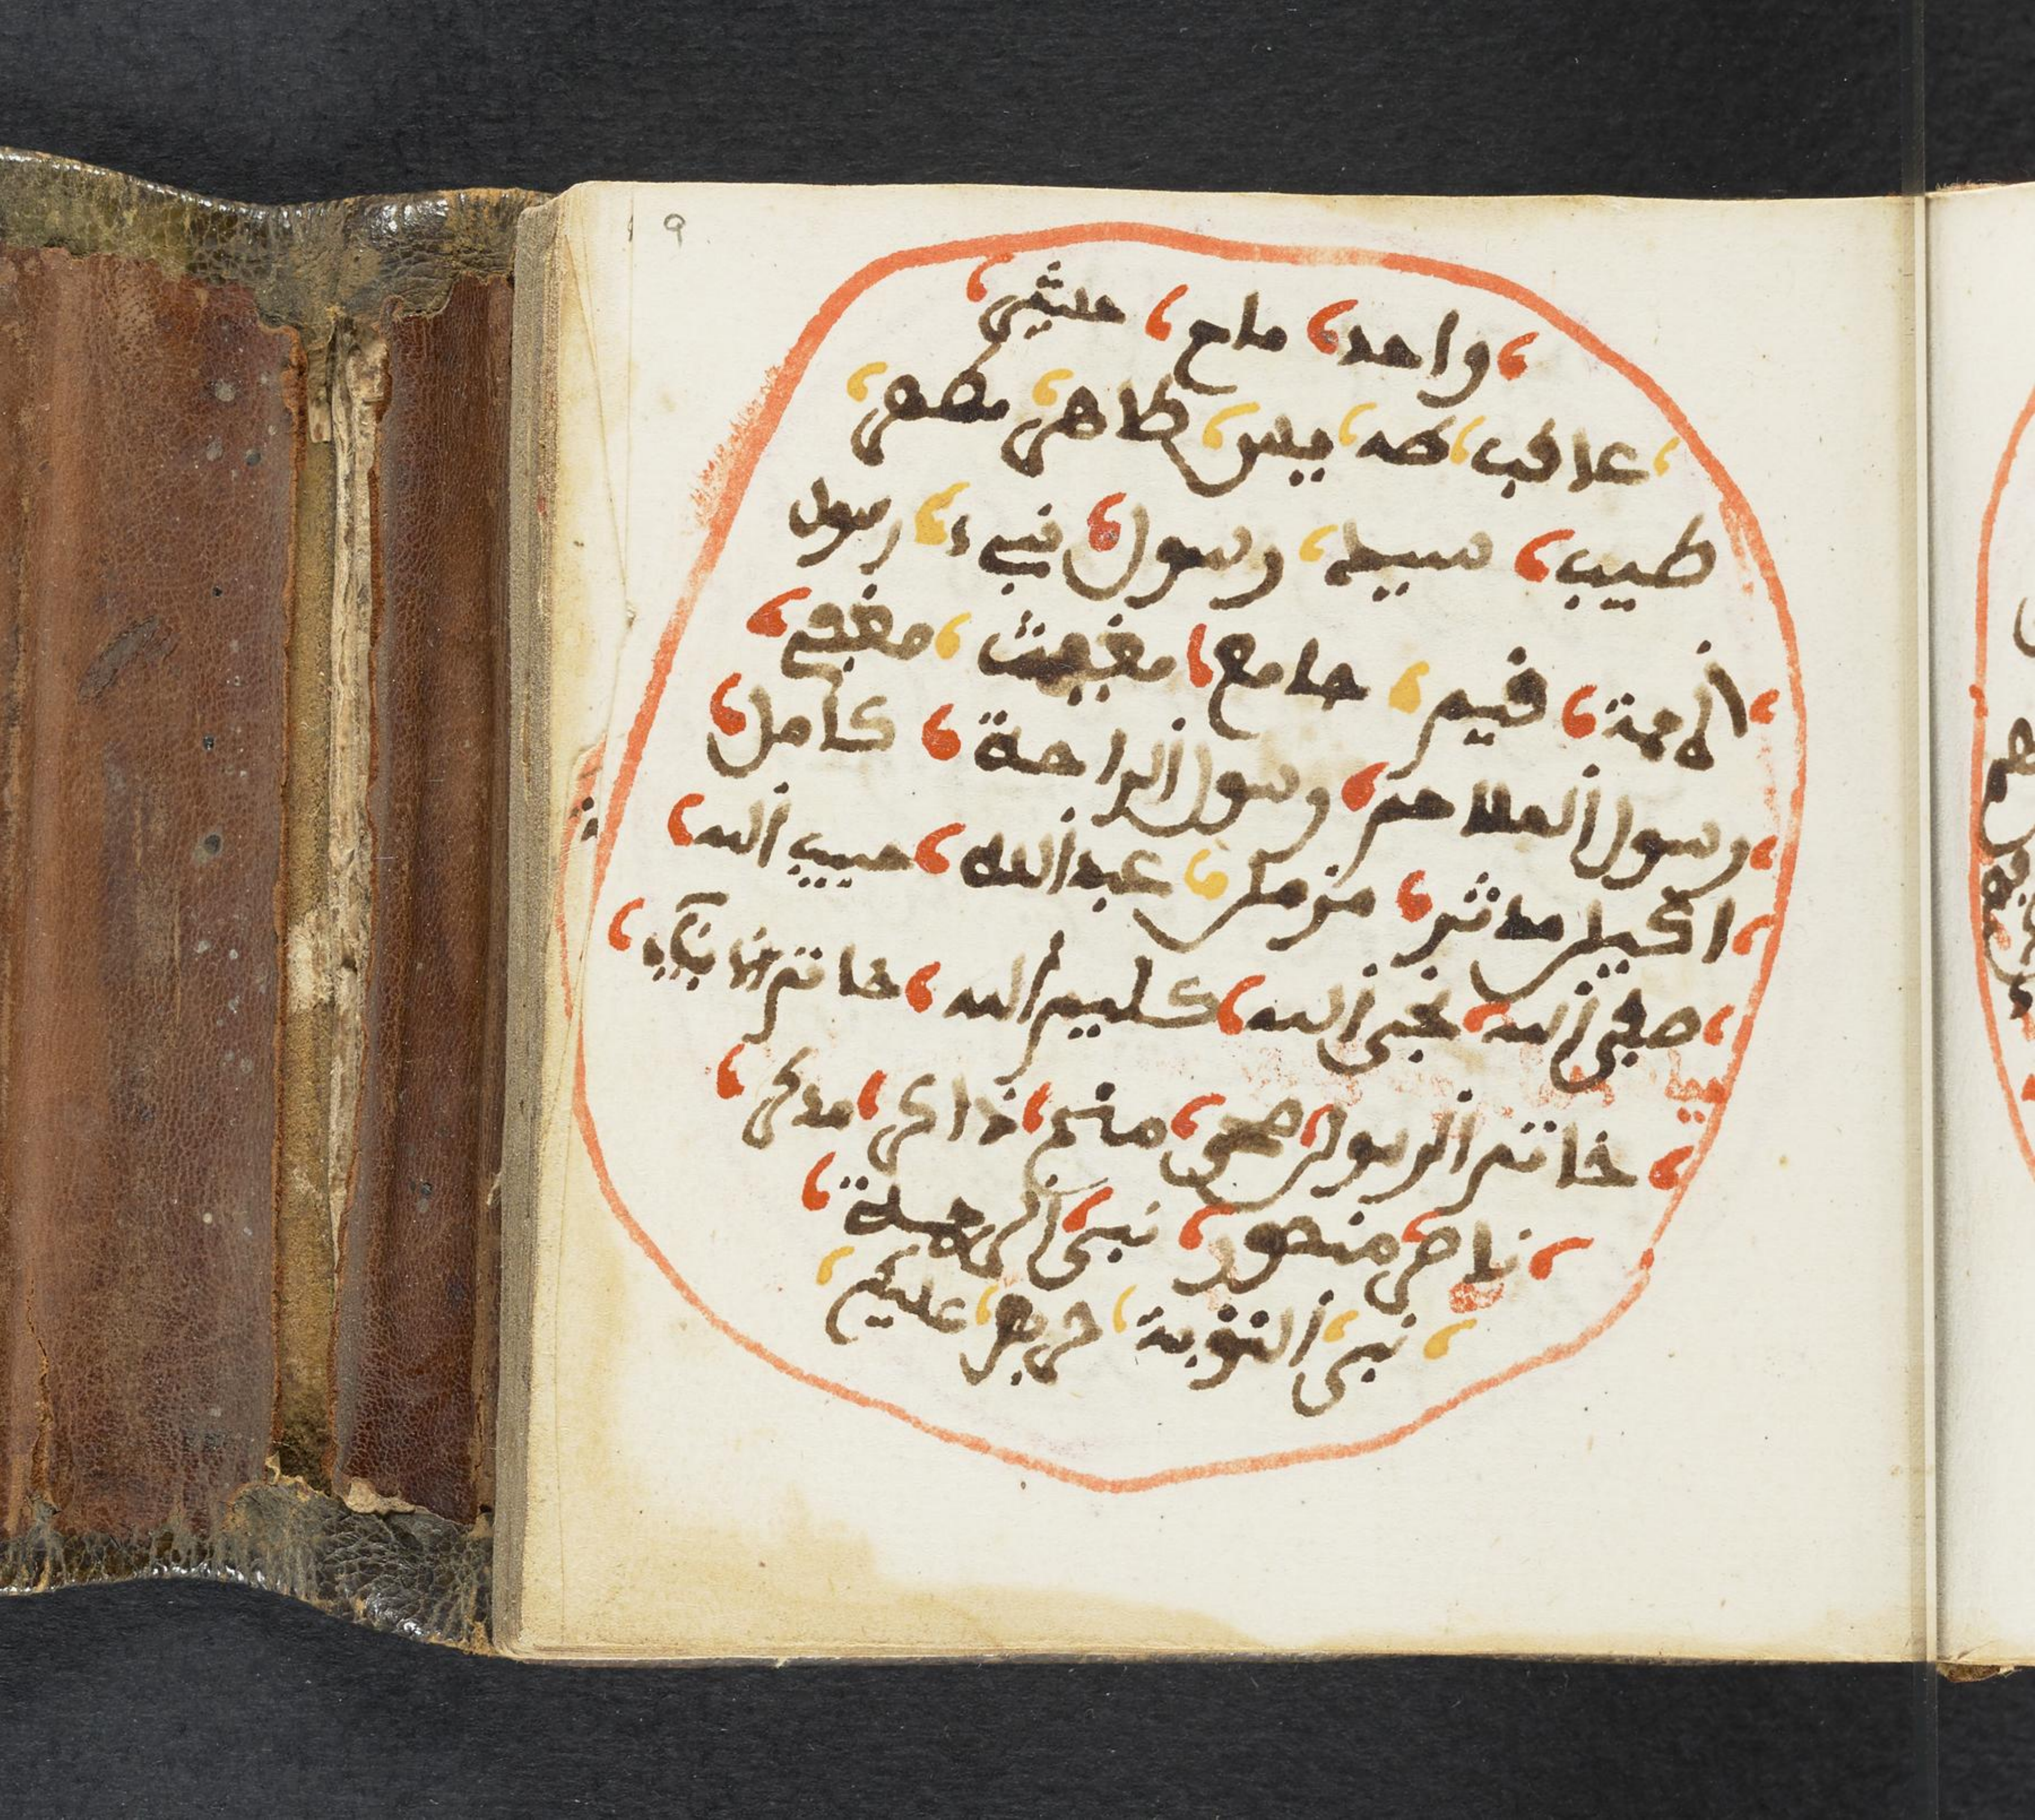 9
واحد، ماح، حاشر،
عاقب، طه، يس، طاهر، مطهر،
طيب، سيد، رسول، نبي، رسول
الرحمة، قيم، جامع، مقتف، مقفى،
رسول الملاحم، رسول الراحة، كامل،
اكليل، مدثر، مزمل، عبد الله، حبيب الله،
صفي الله، نجي الله، كليم الله، خاتم الانبياء،
خاتم الرسول، محي، منج، ذاكر، مدكر،
ناصر، منصور، نبي الرحمة،
نبي التوبة، حريص عليكم،